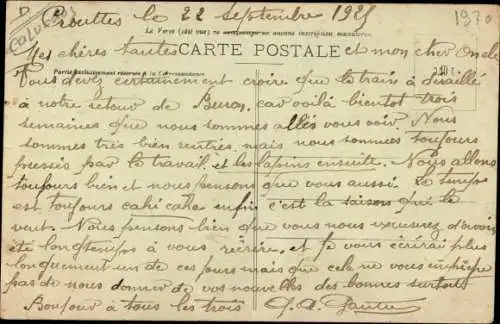 D
CALVADOS
Crouttes le 22 Septembre 1925
1970
Le Recto (côté vue) ne
aucune inscription manuscrite
Mes chères tantes CARTE POSTALE et mon cher Oncle
Partie exclusivement réservée à la Correspondance
Vous devez certainement croire que le train a déraillé
à notre retour de car voilà bientot trois
semaines que nous sommes allés vous voir. Nous
sommes très bien rentrés mais nous sommes toujours
pressés par le travail et les lapins ensuite. Nous allons
toujours bien et nous pensons que vous aussi. Le temps
est toujours cahi caha enfin c'est la saison qui le
veut. Nous pensons bien que vous nous excuserez d'avoir
été longtemps à vous récrire, et je vous écrirai plus
longuement un de ces jours mais que cela ne vous empêche
pas de nous donner de vos nouvelles des bonnes surtout
Bonjour à tous les trois